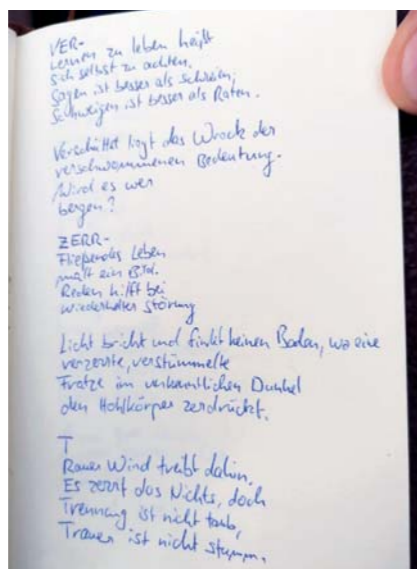 VER-
Lernen zu leben heißt
sich selbst zu achten.
Sagen ist besser als schreien;
Schweigen ist besser als Raten.
Verschüttet liegt das Wrack der
verschwommenen Bedeutung.
Wird es wer
bergen?
ZERR-
Fließendes Leben
malt ein Bild.
Reden hilft bei
wiederholter Störung
Licht bricht und findet keinen Boden, wo eine
verzerrte, verstümmelte
Fratze im Dunkel
den Hohlkörper zerdrückt.
T
Rauer Wind treibt dahin.
Es zerrt das Nichts, doch
Trennung ist nicht taub,
Trauer ist nicht stumm.